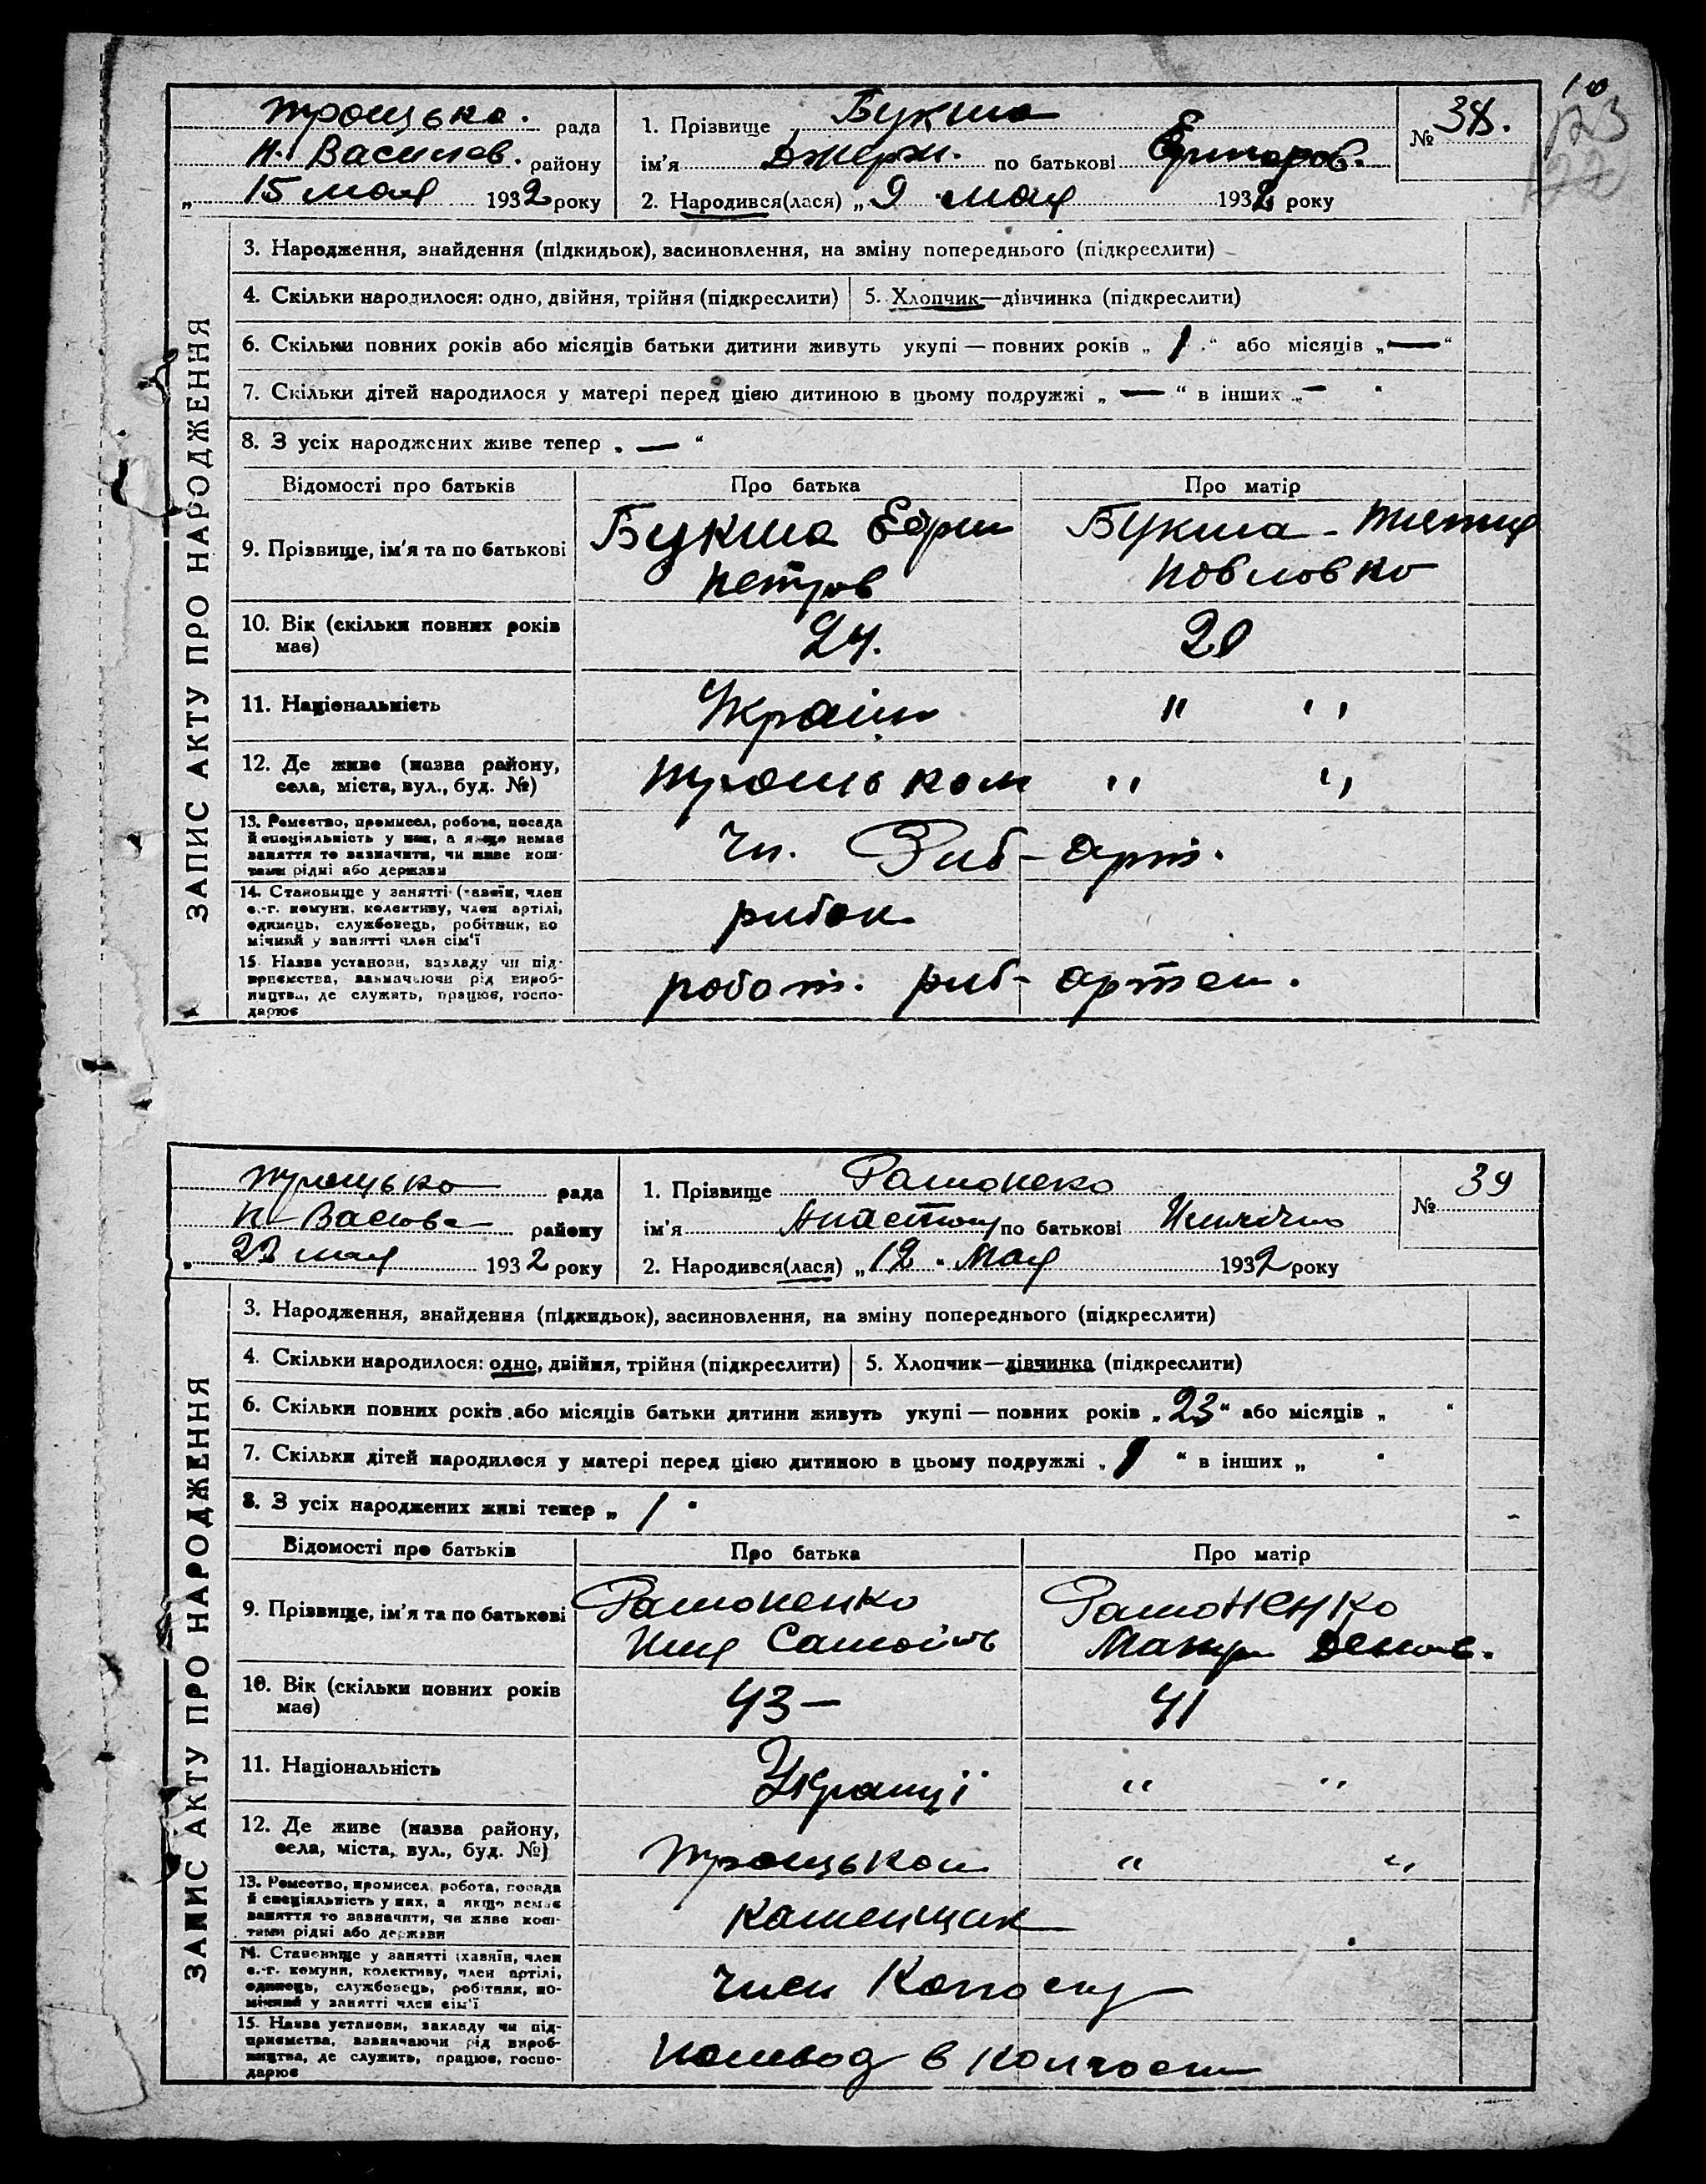 10
123
Троцька. рада
Н. Василев. району
„ 15 мая 1932 року
1. Прізвище Букша
ім'я по батькові
2. Народився(лася) „ 9 " мая 1932 року
№ 38.
ЗАПИС АКТУ ПРО НАРОДЖЕННЯ
3. Народження, знайдення (підкидьок), засиновлення, на зміну попереднього (підкреслити)
4. Скільки народилося: одно, двійня, трійня (підкреслити) 5. Хлопчик—дівчинка (підкреслити)
6. Скільки повних років або місяців батьки дитини живуть укупі — повних років „ 1 " або місяців „ — "
7. Скільки дітей народилося у матері перед цією дитиною в цьому подружжі „ — " в інших „ — "
8. З усіх народжених живе тепер „ — "
Відомості про батьків Про батька Про матір
9. Прізвище, ім'я та по батькові Букша Букша -
Петров Повловко
10. Вік (скільки повних років має) 24. 20
11. Національність Україн " "
12. Де живе (назва району, села, міста, вул., буд. №) Троцьком " "
13. Ремество, промисел, робота, посада
й спеціяльність у них, а якщо немає
заняття то зазначити, чи живе кош-
тами рідні або держави
Чл. Риб - арт.
14. Становище у занятті (хазяїн, член
с.-г. комуни, колективу, член артілі,
одинець, службовець, робітник, по
мічний у занятті член сім'ї
рибак
15. Назва установи, закладу чи під-
приємства, зазначаючи рід вироб-
ництва, де служить, працює, госпо-
дарює
робот. риб - артел.
Троцько рада
Н - Васильв району
„ 22 мая 1932 року
1. Прізвище Рамонеко
ім'я по батькові
2. Народився(лася) „ 12 " Мая 1932 року
№ 39
ЗАПИС АКТУ ПРО НАРОДЖЕННЯ
3. Народження, знайдення (підкидьок), засиновлення, на зміну попереднього (підкреслити)
4. Скільки народилося: одно, двійня, трійня (підкреслити) 5. Хлопчик—дівчинка (підкреслити)
6. Скільки повних років або місяців батьки дитини живуть укупі — повних років „ 23 " або місяців „ "
7. Скільки дітей народилося у матері перед цією дитиною в цьому подружжі „ 1 " в інших „ "
8. З усіх народжених живі тепер „ 1 "
Відомості про батьків Про батька Про матір
9. Прізвище, ім'я та по батькові Рамоненко Рамоненко
10. Вік (скільки повних років має) 43 — 41
11. Національність Українці " "
12. Де живе (назва району, села, міста, вул., буд. №) Троцьком " "
13. Ремество, промисел, робота, посада
й спеціяльність у них, а якщо немає
заняття то зазначити, чи живе кош-
тами рідні або держави
каменщик
14. Становище у занятті (хазяїн, член
с.-г. комуни, колективу, член артілі,
одинець, службовець, робітник, по-
мічний у занятті член сім'ї
член
15. Назва установи, закладу чи під-
приємства, зазначаючи рід вироб-
ництва, де служить, працює, госпо-
дарює
в колгоспи